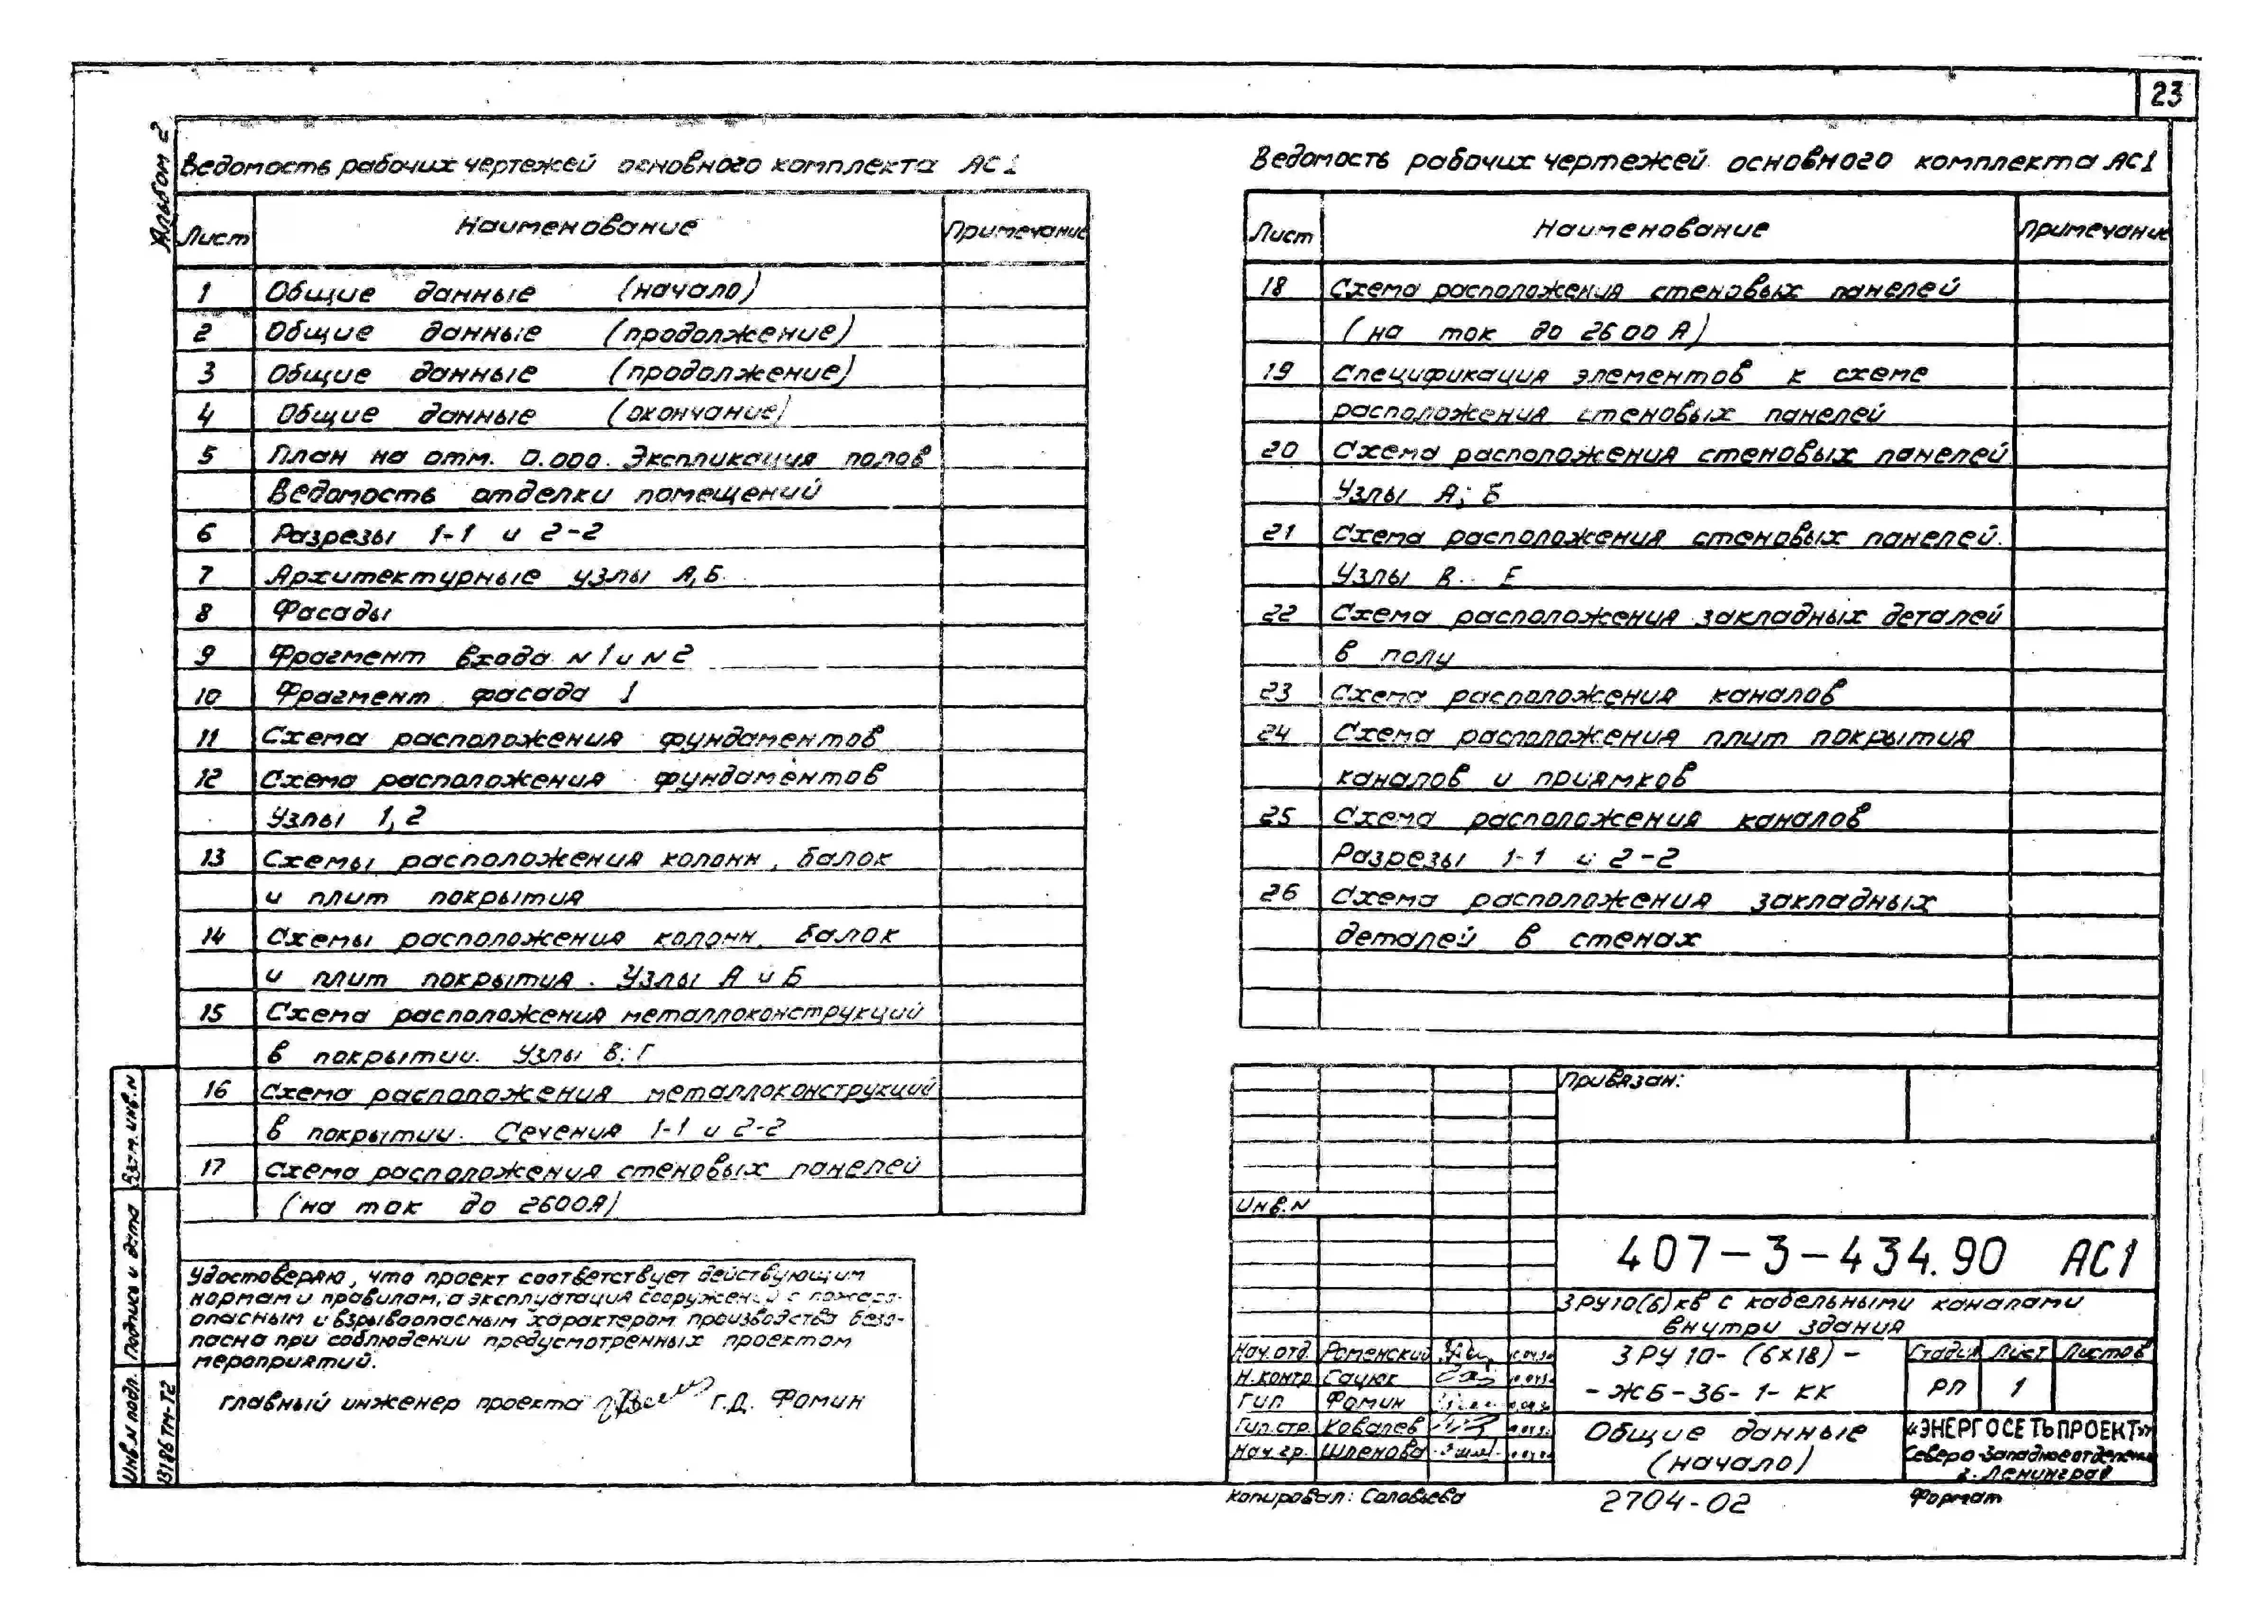 23
Альбом 2
Ведомость рабочих чертежей основного комплекта АС1
Лист Наименование Примечание
1 Общие данные (начало)
2 Общие данные (продолжение)
3 Общие данные (продолжение)
4 Общие данные (окончание)
5 План на отм. 0.000. Экспликация полов
Ведомость отделки помещений
6 Разрезы 1-1 и 2-2
7 Архитектурные узлы А,Б
8 Фасады
9 Фрагмент входа N1 и N2
10 Фрагмент фасада 1
11 Схема расположения фундаментов
12 Схема расположения фундаментов
Узлы 1, 2
13 Схемы расположения колонн, балок
и плит покрытия
14 Схемы расположения колонн, балок
и плит покрытия. Узлы А и Б
15 Схема расположения металлоконструкций
в покрытии. Узлы В; Г
16 Схема расположения металлоконструкций
в покрытии. Сечения 1-1 и 2-2
17 Схема расположения стеновых панелей
(на ток до 2600А)
Удостоверяю, что проект соответствует действующим
нормам и правилам, а эксплуатация сооружений с пожаро-
опасным и взрывоопасным характером производства безо-
пасна при соблюдении предусмотренных проектом
мероприятий.
Главный инженер проекта Г.Д. Фомин
Ведомость рабочих чертежей основного комплекта АС1
Лист Наименование Примечание
18 Схема расположения стеновых панелей
(на ток до 2600 А)
19 Спецификация элементов к схеме
расположения стеновых панелей
20 Схема расположения стеновых панелей
Узлы А; Б
21 Схема расположения стеновых панелей.
Узлы В.. Е
22 Схема расположения закладных деталей
в полу
23 Схема расположения каналов
24 Схема расположения плит покрытия
каналов и приямков
25 Схема расположения каналов
Разрезы 1-1 и 2-2
26 Схема расположения закладных
деталей в стенах
Привязан:
Инв.N
407-3-434.90 АС1
ЗРУ10(6)кВ с кабельными каналами
внутри здания
Нач.отд. Роменский
Н.контр Сацюк
ГИП Фомин
Гип.стр. Ковалев
Нач.гр. Шленова
ЗРУ 10-(6х18)-
-ЖБ-36-1-КК
Стадия Лист Листов
РП 1
Общие данные
(начало)
«ЭНЕРГОСЕТЬПРОЕКТ»
Северо-Западное отделение
г. Ленинград
Копировал: Соловьева 2704-02 Формат
Взам.инв.N
Подпись и дата
Инв.N подл.
13186ТМ-Т2